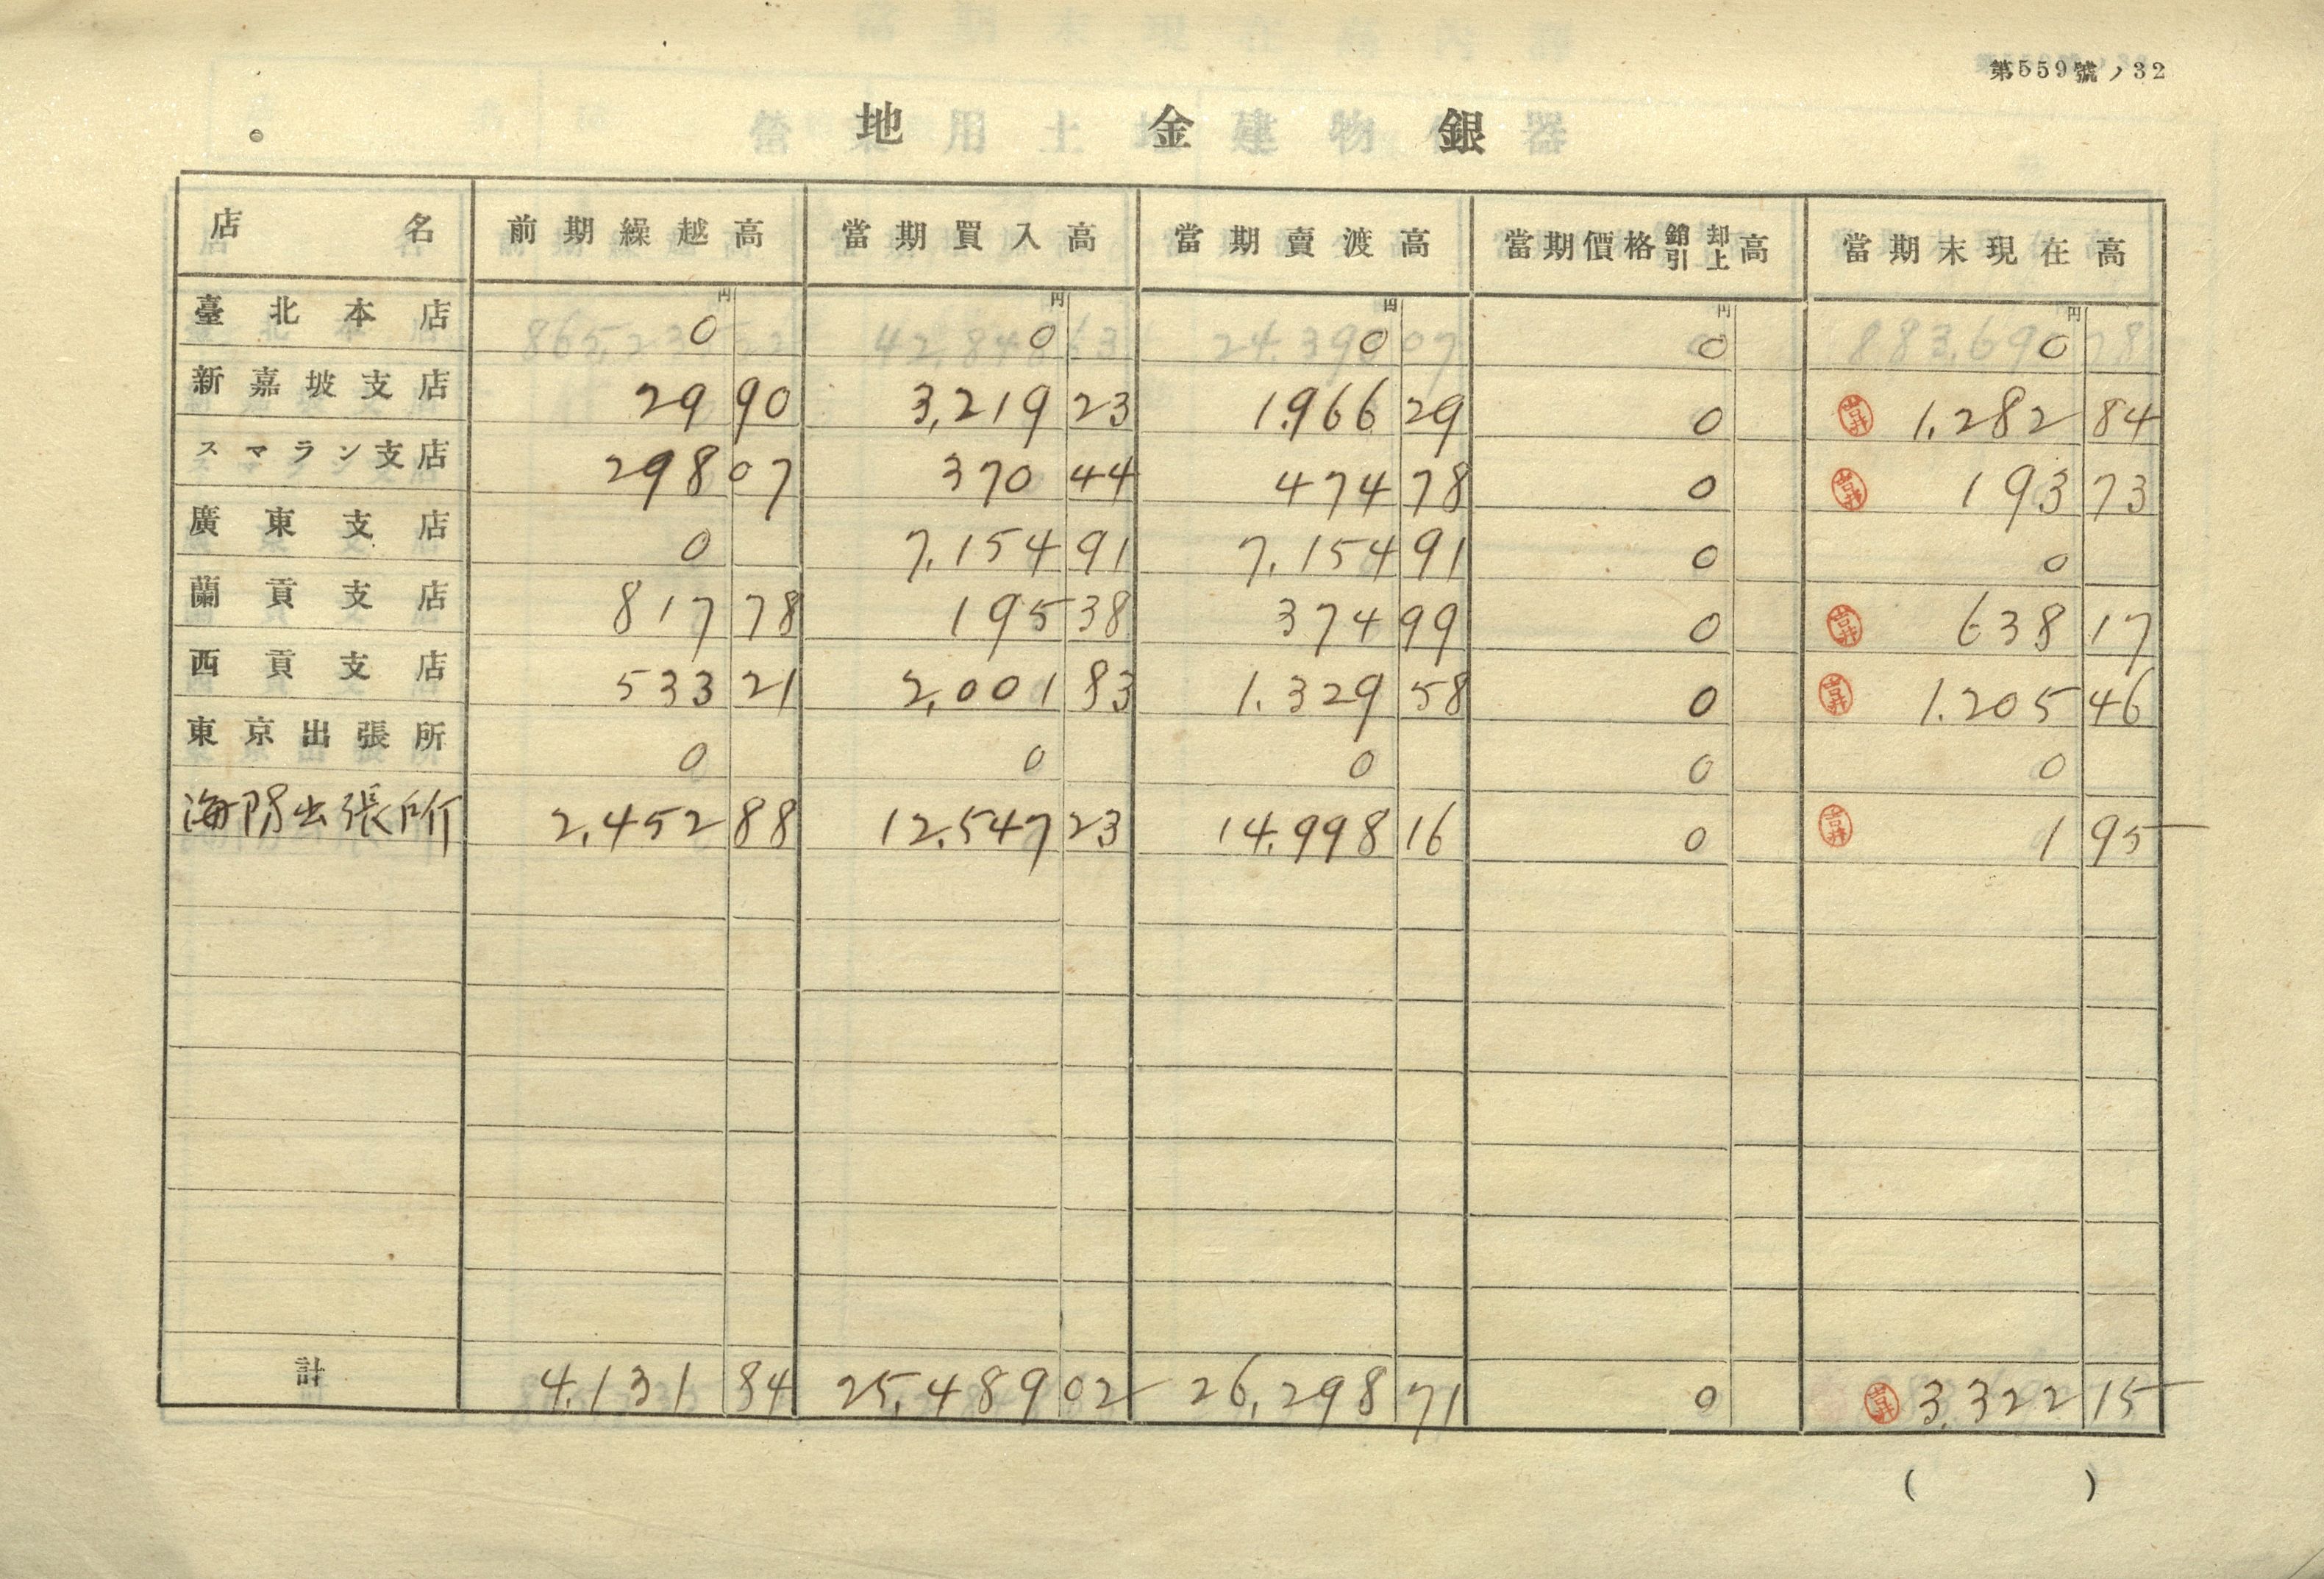 第559號ノ32
地金銀
店名 前期繰越高 當期買入高 當期賣渡高 當期價格銷却引上高 當期末現在高
円 円 円 円 円
臺北本店 0 0 0 0 0
新嘉坡支店 29 90 3,219 23 1.966 29 0 吉井 1.282 84
スマラン支店 298 07 370 44 474 78 0 吉井 193 73
廣東支店 0 7,154 91 7,154 91 0 0
蘭貢支店 817 78 195 38 374 99 0 吉井 638 17
西貢支店 533 21 2,001 83 1.329 58 0 吉井 1.205 46
東京出張所 0 0 0 0 0
海防出張所 2,452 88 12,547 23 14.998 16 0 吉井 1 95
計 4,131 84 25,489 02 26,298 71 0 吉井 3,322 15
( )